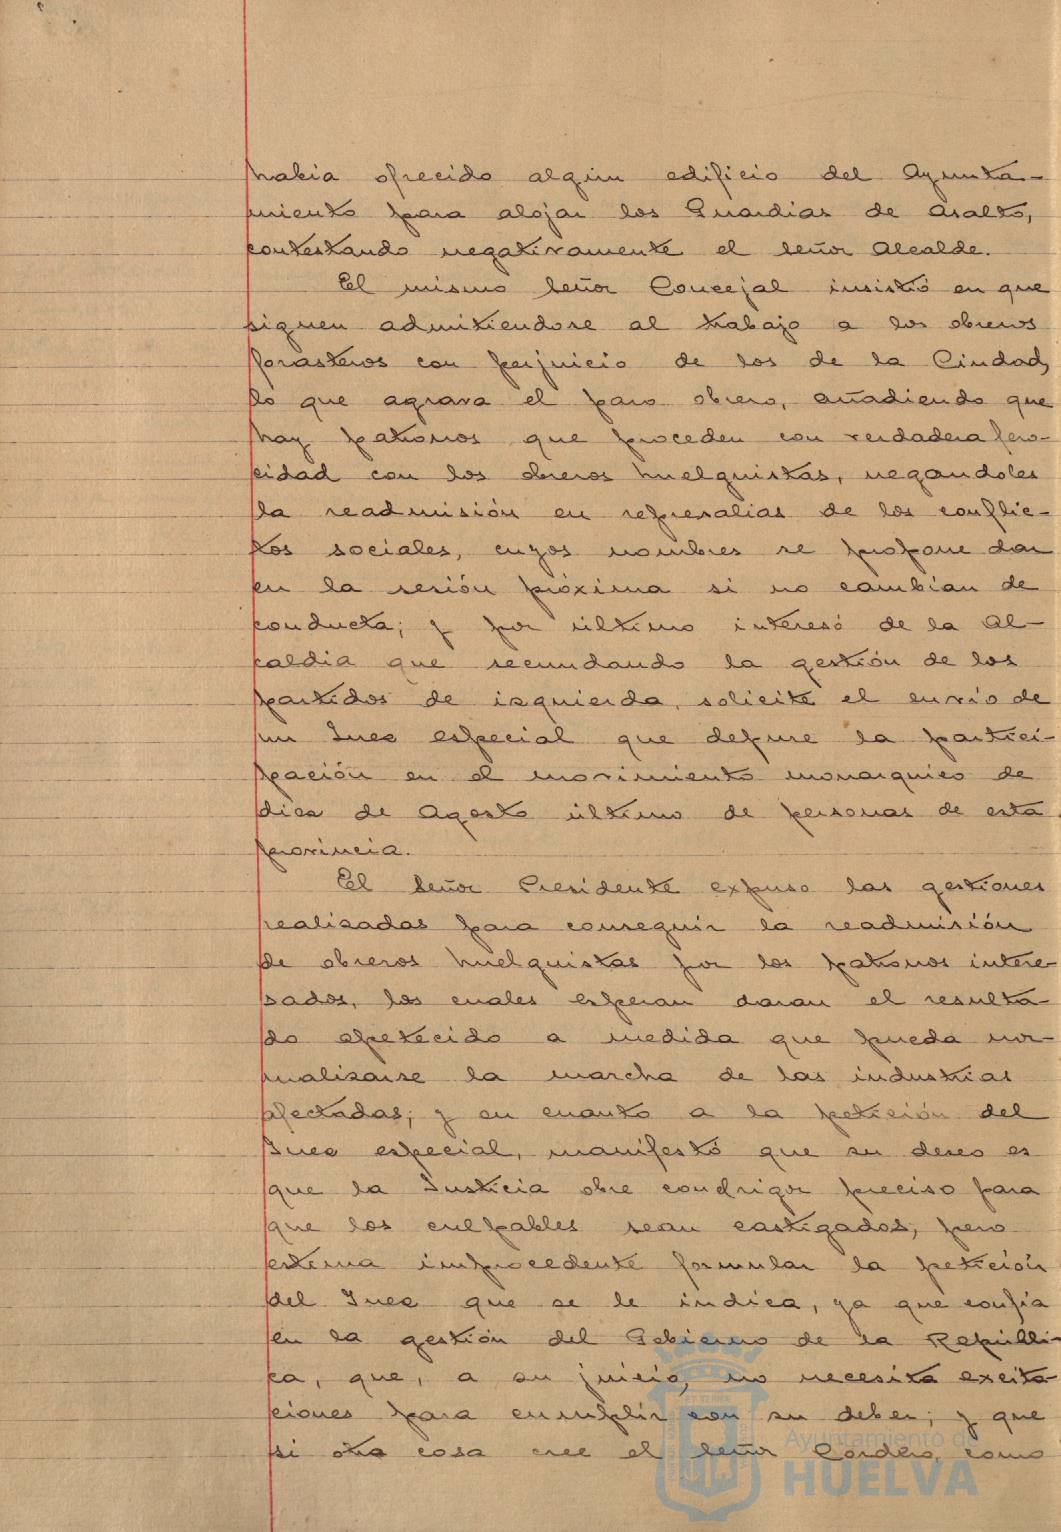 habia ofrecido algún edificio del Ayunta-
miento para alojar los Guardias de Asalto,
contestando negativamente el Señor Alcalde.
El mismo Señor Concejal insistió en que
siguen admitiendose al trabajo a los obreros
forasteros con perjuicio de los de la Ciudad,
lo que agrava el paro obrero, añadiendo que
hay patronos que proceden con verdadera fero-
cidad con los obreros huelguistas, negandoles
la readmisión en represalias de los conflic-
tos sociales, cuyos nombres se propone dar
en la sesión próxima si no cambian de
conducta; y por último interesó de la Al-
caldia que secundando la gestión de los
partidos de izquierda, solicite el envio de
un Juez especial que depure la partici-
pación en el movimiento monarquico de
diez de Agosto último de personas de esta
provincia.
El Señor Presidente expuso las gestiones
realizadas para conseguir la readmisión
de obreros huelguistas por los patronos intere-
sados, las cuales esperan daran el resulta-
do apetecido a medida que pueda nor-
malizarse la marcha de las industrias
afectadas; y en cuanto a la petición del
Juez especial, manifestó que su deseo es
que la Justicia obre con el rigor preciso para
que los culpables sean castigados, pero
estima improcedente formular la petición
del Juez que se le indica, ya que confia
en la gestión del Gobierno de la Repúbli-
ca, que, a su juicio, no necesita excita-
ciones para cumplir con su deber; y que
si otra cosa cree el Señor Cordero, como
Ayuntamiento de
HUELVA